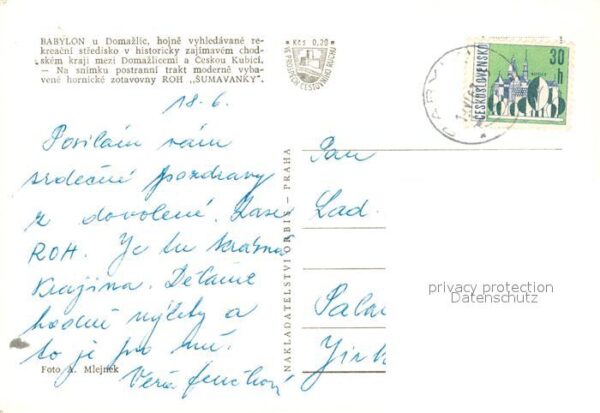 BABYLON u Domažlic, hojně vyhledávané re-
kreační středisko v historicky zajímavém chod-
ském kraji mezi Domažlicemi a Českou Kubicí.
— Na snímku postranní trakt moderně vyba-
vené hornické zotavovny ROH „ŠUMAVANKY".
Kčs 0,20
VE PROSPĚCH CESTOVNÍHO RUCHU
ČESKOSLOVENSKO
30 h
18. 6.
Posílám vám
srdečné pozdravy
z dovolené.
ROH. Je tu krásná
Krajina. Děláme
hodně výlety a
to je pro mě.
Věra
Foto A. Mlejnek
NAKLADATELSTVÍ ORBIS - PRAHA
Pan
Lad.
privacy protection
Datenschutz